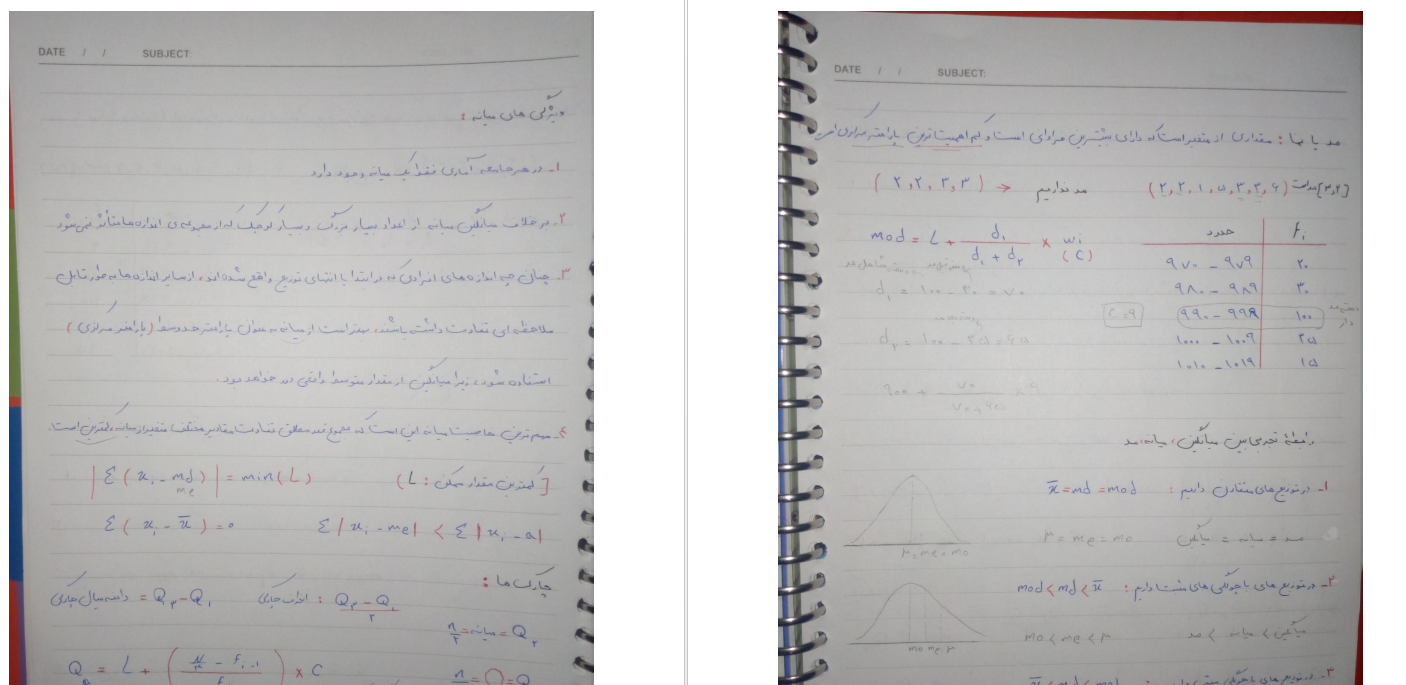 DATE / / SUBJECT:
ویژگی های میانه :
۱- در هر جامعه آماری فقط یک میانه وجود دارد
۲- بر خلاف میانگین میانه از اعداد بسیار بزرگ و بسیار کوچک که از مجموعه ی اندازه ها متأثر نمی شود
۳- چنان چه اندازه های افرادی که در ابتدا یا انتهای توزیع واقع شده اند، از سایر اندازه ها به طور قابل
ملاحظه ای تفاوت داشته باشند، بهتر است از میانه به عنوان پارامتر حد وسط (پارامتر مرکزی)
استفاده شود، زیرا میانگین از مقدار متوسط واقعی دور خواهد بود.
۴- مهم ترین خاصیت میانه این است که مجموع قدر مطلق تفاوت مقادیر مختلف متغیر از میانه، کمترین است.
|Σ( xi - md )| = min(L) [کمترین مقدار ممکن : L)
me
Σ( xi - x̄ ) = 0 Σ|xi - me| < Σ|xi - a|
چارک ها :
دامنه میان چارکی = Q۳ - Q۱ انحراف چارکی : Q۳ - Q۱ / ۲
n/۲ = میانه = Q۲
DATE / / SUBJECT:
مد یا نما : مقداری از متغیر است که دارای بیشترین فراوانی است و کم اهمیت ترین پارامتر مرکزی است
(۲,۲,۳,۳) → مد نداریم (۲,۲,۱,۵,۳,۳,۶) [۳و۲] مد است
حدود fi
mod = L + d۱ / d۱ + d۲ × wi (C)
۹۷۰ - ۹۷۹ ۲۰
d۱ = ۱۰۰ - ۳۰ = ۷۰
۹۸۰ - ۹۸۹ ۳۰
C = ۹ ۹۹۰ - ۹۹۹ ۱۰۰
d۲ = ۱۰۰ - ۳۵ = ۶۵
۱۰۰۰ - ۱۰۰۹ ۳۵
۱۰۱۰ - ۱۰۱۹ ۱۵
رابطهٔ تجربی بین میانگین، میانه، مد
۱- در توزیع های متقارن داریم : x̄ = md = mod
μ = me = mo مد = میانه = میانگین
μ = me = mo
۲- در توزیع های با چولگی های مثبت داریم : mod < md < x̄
mo < me < μ میانگین > میانه > مد
mo me μ